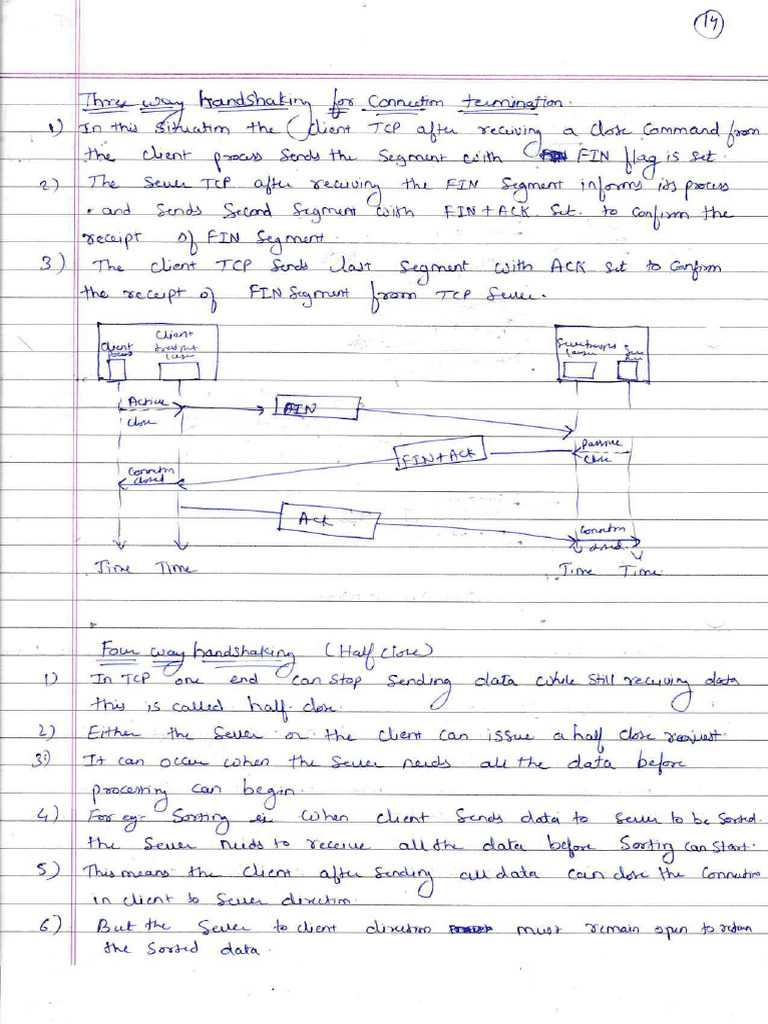 14
Three way handshaking for Connection termination.
1) In this situation the client TCP after receiving a close command from
the client process sends the segment with FIN flag is set.
2) The Server TCP after receiving the FIN segment informs its process
and sends second segment with FIN+ACK set. to confirm the
receipt of FIN segment.
3) The client TCP sends last segment with ACK set to confirm
the receipt of FIN segment from TCP Server.
Client process
Client transport layer
Server transport layer
Active close
FIN
Passive close
FIN+ACK
Connection closed
ACK
Connection closed
Time Time Time Time
Four way handshaking (Half close)
1) In TCP one end can stop sending data while still receiving data
this is called half-close.
2) Either the Server or the client can issue a half close request.
3) It can occur when the Server needs all the data before
processing can begin.
4) For eg:- Sorting ie when client sends data to server to be sorted.
the server needs to receive all the data before sorting can start.
5) This means the client after sending all data can close the connection
in client to server direction.
6) But the Server to client direction must remain open to return
the sorted data.